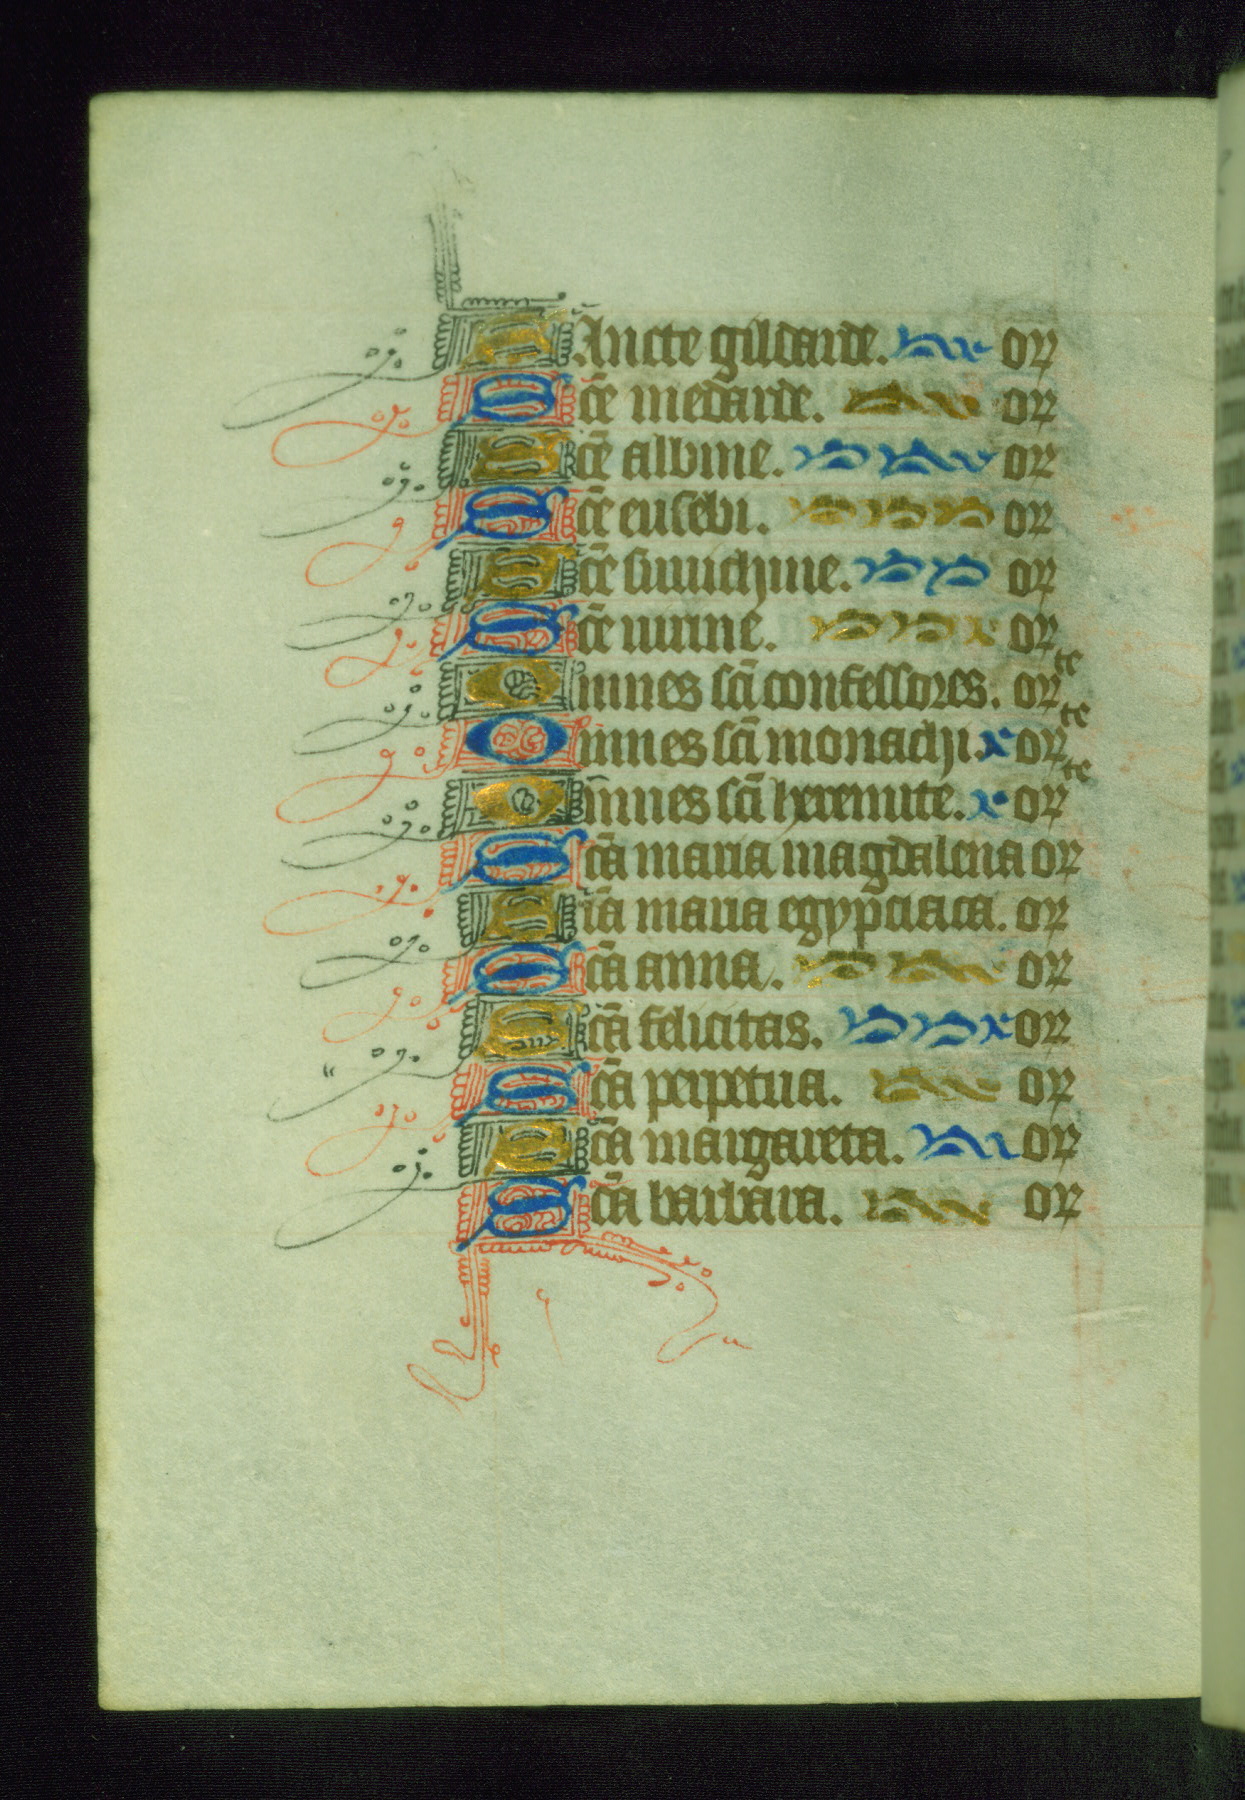 SAncte gildarde. or
Scē medarde. or
Scē albine. or
Scē eusebi. or
Scē or
Scē or
Omnes scī confessores. orte
Omnes scī monachi. orte
Omnes scī heremite. orte
Scā maria magdalena or
Scā maria egyptiaca. or
Scā anna. or
Scā felicitas. or
Scā perpetua. or
Scā margareta. or
Scā barbara. or